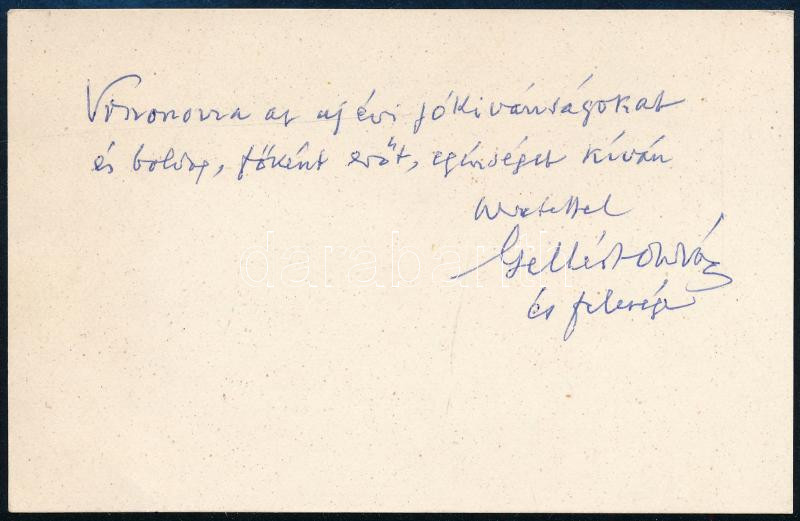 Viszonozza az új évi jókivánságokat
és boldog, főként erőt, egészséget kíván
szeretettel
Gellért Oszkár
és felesége
darabanth